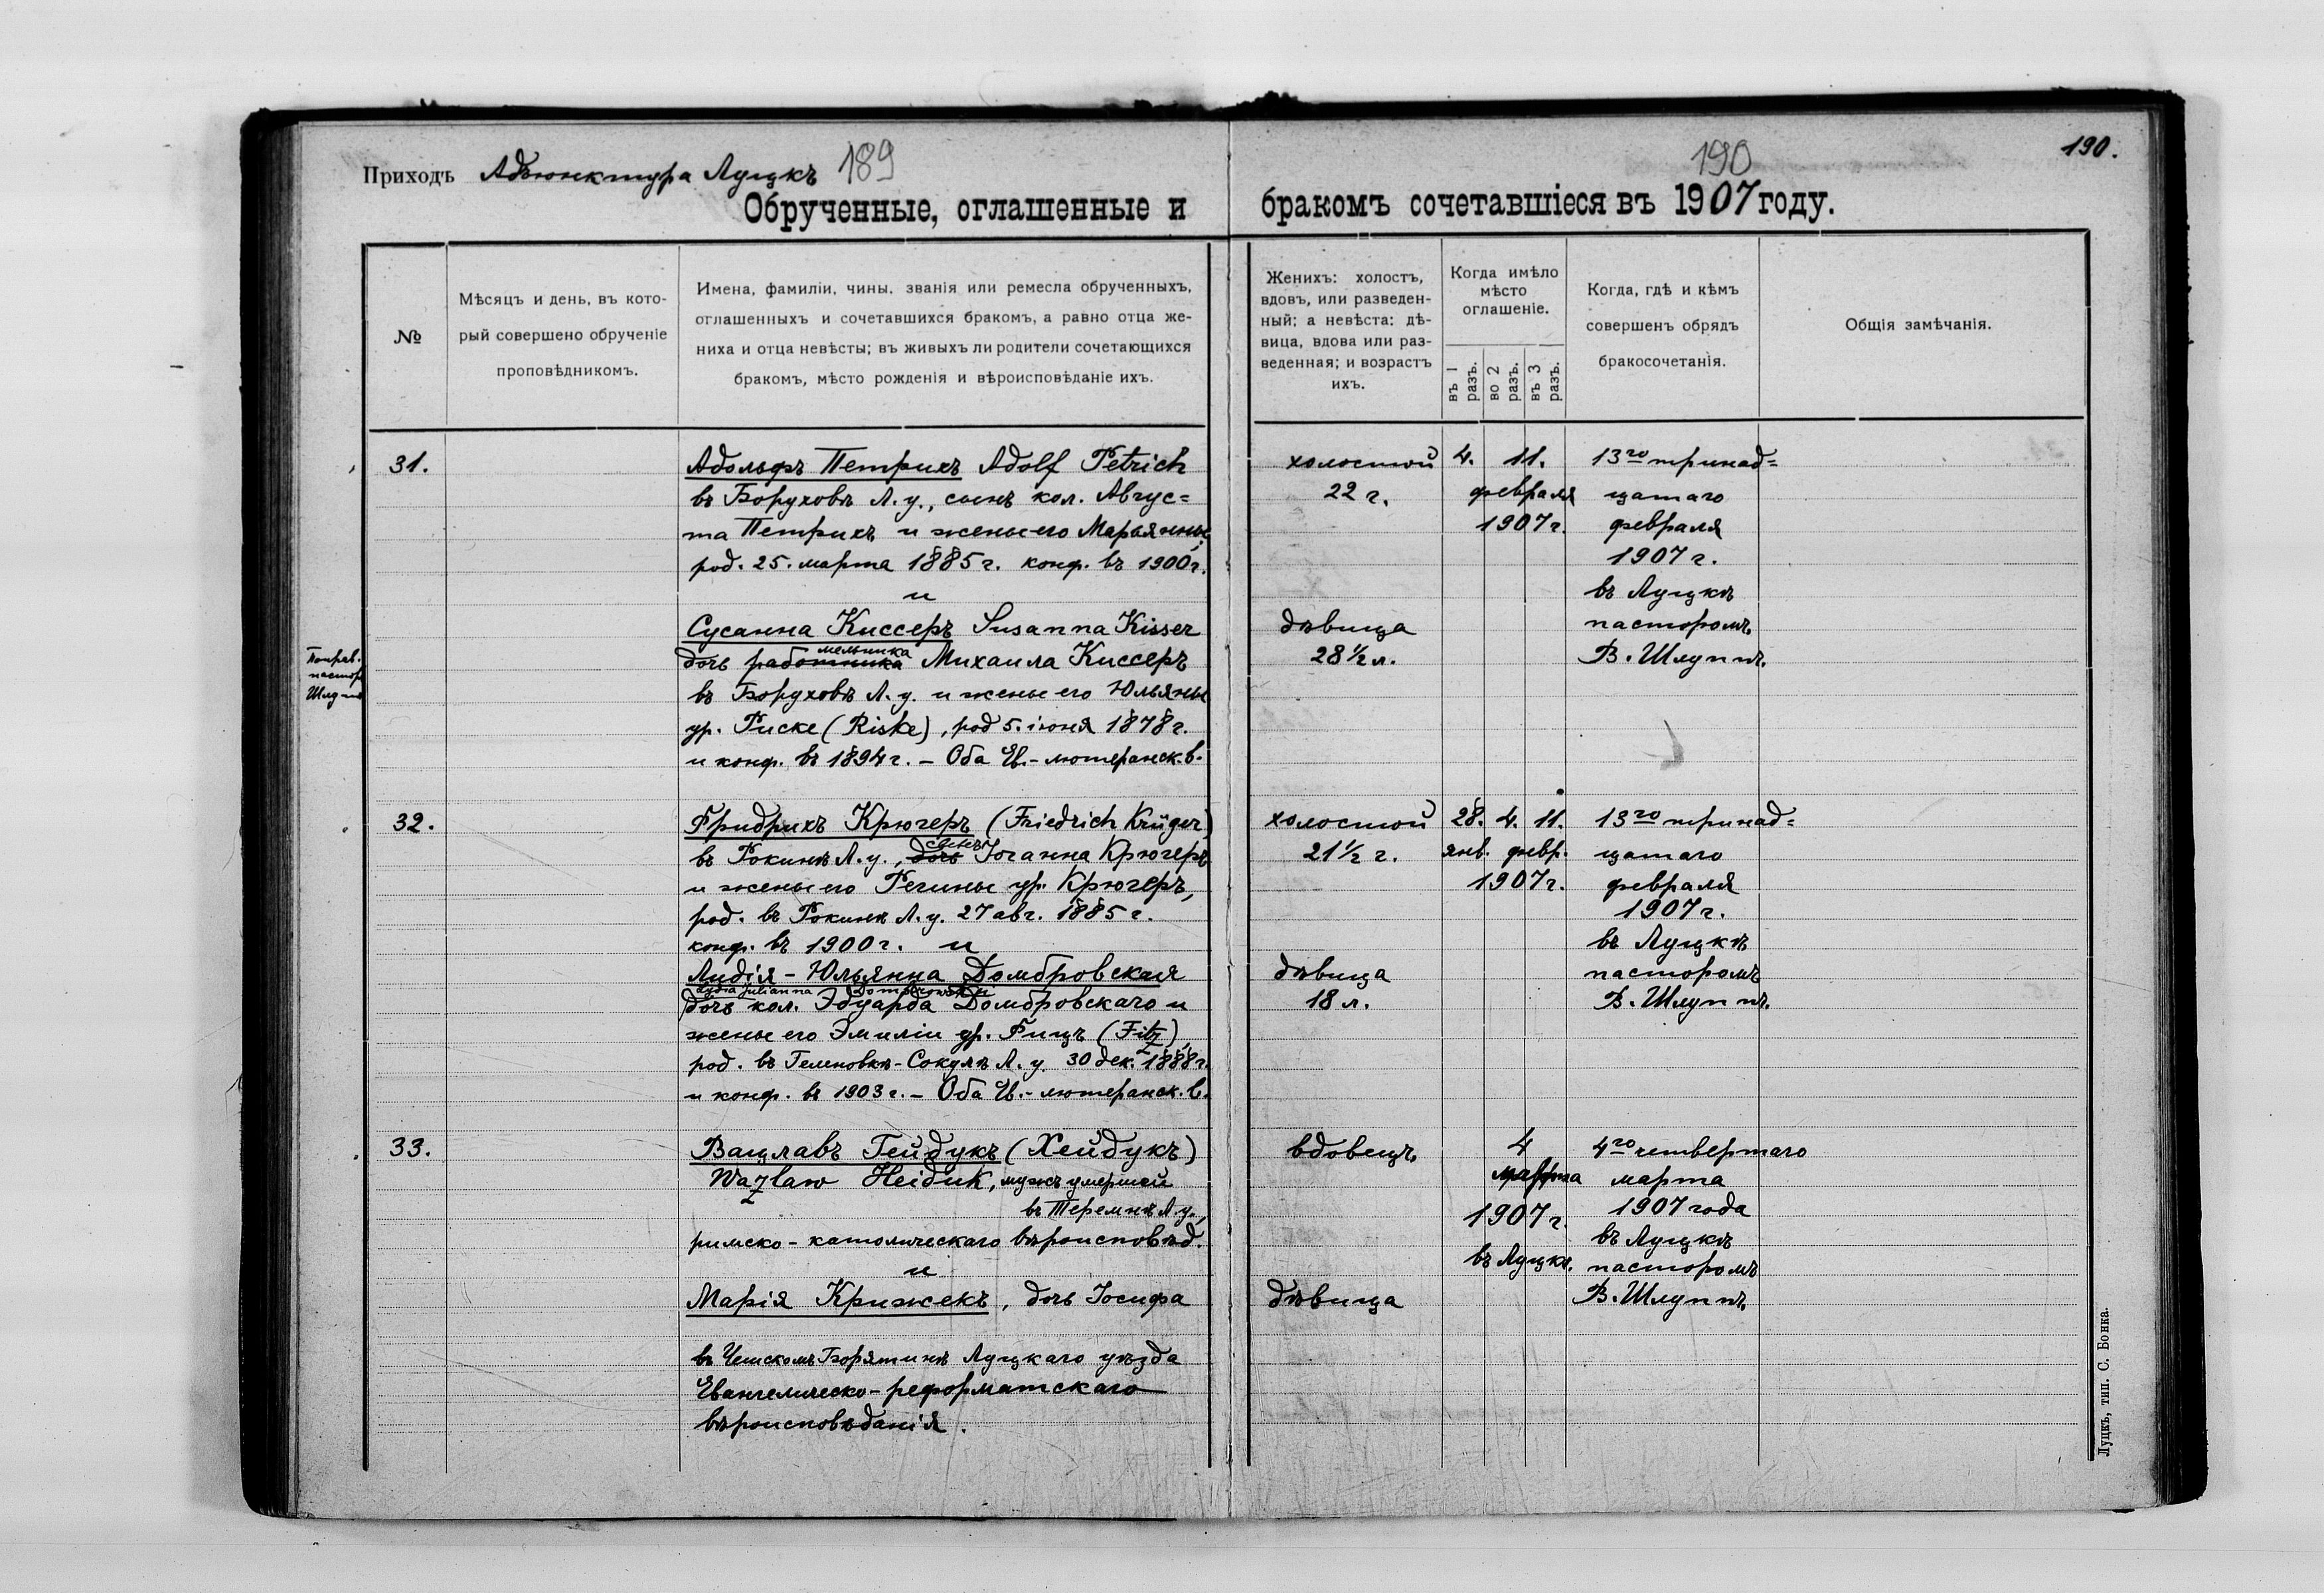 Приходъ Адъюнктура Луцкъ 189
Обрученные, оглашенные и
№
Мѣсяцъ и день, въ кото-
рый совершено обрученіе
проповѣдникомъ.
Имена, фамиліи, чины, званія или ремесла обрученныхъ,
оглашенныхъ и сочетавшихся бракомъ, а равно отца же-
ниха и отца невѣсты; въ живыхъ ли родители сочетающихся
бракомъ, мѣсто рожденія и вѣроисповѣданіе ихъ.
31.
Адольфъ Петрихъ Adolf Petrich
въ Боруховѣ Л. у., сынъ кол. Авгус=
та Петрихъ и жены его Марьянны,
род. 25. марта 1885 г. конф. въ 1900 г.
и
Сусанна Киссеръ Susanna Kisser
мельника
дочь работника Михаила Киссеръ
въ Боруховѣ Л. у. и жены его Юльяны
ур. Риске (Riske), род 5. іюня 1878 г.
и конф. въ 1894 г. – Оба Ев.-лютеранск. в.
Поправ.
пастор
Шлупп
32.
Фридрихъ Крюгеръ (Friedrich Krüger)
сынъ
въ Рокинѣ Л. у., дочь Іоганна Крюгеръ
и жены его Регины ур. Крюгеръ,
род. въ Рокинѣ Л. у. 27 авг. 1885 г.
конф. въ 1900 г. и
Лидія-Юльянна Домбровская
Lydia Julianna Dombrowski
дочь кол. Эдуарда Домбровскаго и
жены его Эмиліи ур. Фицъ (Fitz),
род. въ Гелиновкѣ-Сокулѣ Л. у. 30 дек. 1888 г.
и конф. въ 1903 г. – Оба Ев.-лютеранск. в.
33.
Вацлавъ Гейдукъ (Хейдукъ)
Wazlaw Heiduk, мужъ умершей
въ Теремнѣ Л у.,
римско-католическаго вѣроисповѣд.
и
Марія Крижекъ, дочь Іосифа
въ Чешскомъ Борятинѣ Луцкаго уѣзда
Евангелическо-реформатскаго
вѣроисповѣданія.
190
190.
бракомъ сочетавшіеся въ 1907 году.
Женихъ: холостъ,
вдовъ, или разведен-
ный; а невѣста: дѣ-
вица, вдова или раз-
веденная; и возрастъ
ихъ.
Когда имѣло
мѣсто
оглашеніе.
въ 1 разъ.
во 2 разъ.
въ 3 разъ.
Когда, гдѣ и кѣмъ
совершенъ обрядъ
бракосочетанія.
Общія замѣчанія.
холостой 4. 11. 13го тринад=
22 г. февраля цатаго
1907 г. февраля
1907 г.
въ Луцкѣ
дѣвица пасторомъ
28 ½ л. В. Шлуппъ.
холостой 28. 4. 11. 13го тринад=
21 ½ г. янв. февр. цатаго
1907 г. февраля
1907 г.
въ Луцкѣ
дѣвица пасторомъ
18 л. В. Шлуппъ.
вдовецъ 4 4го четвертаго
марта марта
1907 г. 1907 года
въ Луцкѣ
въ Луцкѣ. пасторомъ
дѣвица В. Шлуппъ.
Луцкъ, тип. С. Бонка.